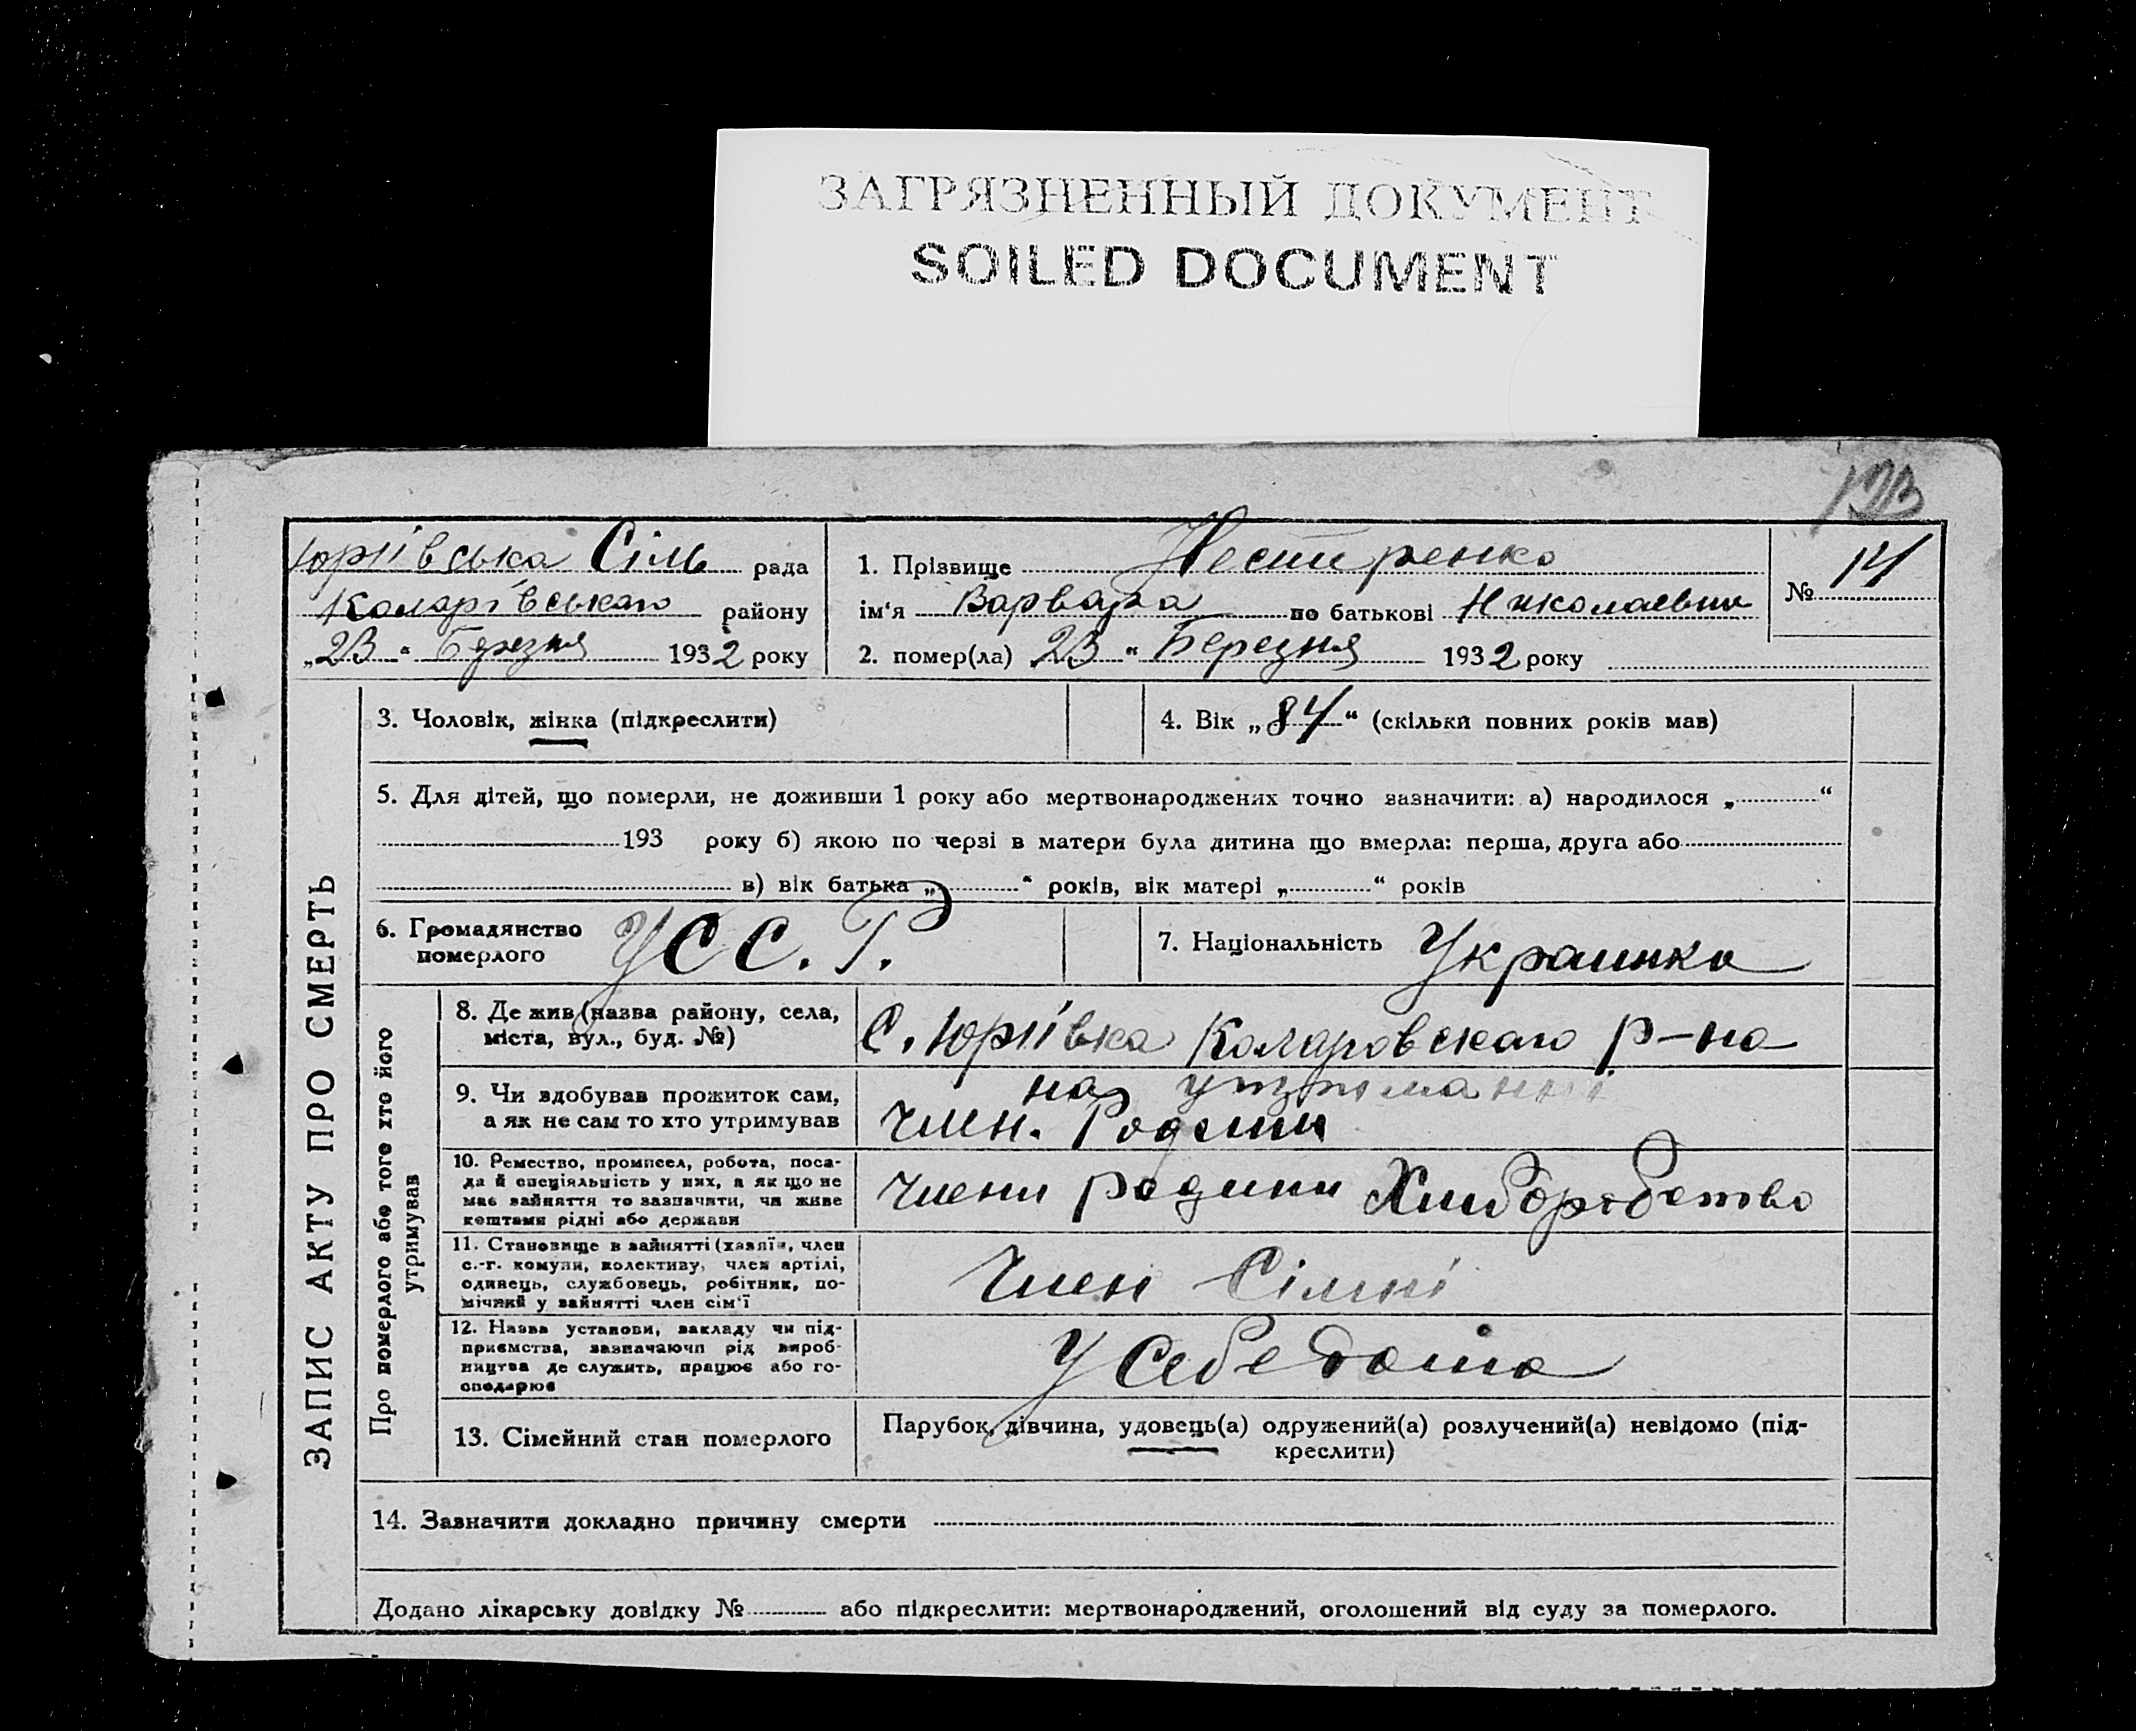 ЗАГРЯЗНЕННЫЙ ДОКУМЕНТ
SOILED DOCUMENT
Юріївська Сіль рада
Коларівського району
„23“ Березня 1932 року
1. Прізвище Нестиренко
ім‘я Варвара по батькові Николаевна
2. помер(ла) 23 “ Березня 1932 року
№ 14
ЗАПИС АКТУ ПРО СМЕРТЬ
3. Чоловік, жінка (підкреслити)
4. Вік „84“ (скільки повних років мав)
5. Для дітей, що померли, не доживши 1 року або мертвонароджених точно зазначити: а) народилося „ “
193 року б) якою по черзі в матери була дитина що вмерла: перша, друга або
в) вік батька „ “ років, вік матері „ “ років
6. Громадянство
померлого
УСС.Р.
7. Національність Украинка
Про померлого або того хто його
утримував
8. Де жив (назва району, села,
міста, вул., буд. №)
С. Юріївка Коларовскаго р-на
9. Чи здобував прожиток сам,
а як не сам то хто утримував
на утриманні
Член. Родини
10. Ремество, промисел, робота, поса-
да й спеціяльність у них, а як що не
має зайняття то зазначити, чи живе
коштами рідні або держави
Члени родини Хлиборобство
11. Становище в зайнятті (хазяїн, член
с.-г. комуни, колективу, член артілі,
одинець, службовець, робітник, по-
мічний у зайнятті член сім‘ї
Член Сімні
12. Назва установи, закладу чи під-
приємства, зазначаючи рід вироб-
ництва де служить, працює або го-
сподарює
У Себе дома
13. Сімейний стан померлого
Парубок, дівчина, удовець(а) одружений(а) розлучений(а) невідомо (під-
креслити)
14. Зазначити докладно причину смерти
Додано лікарську довідку № або підкреслити: мертвонароджений, оголошений від суду за померлого.